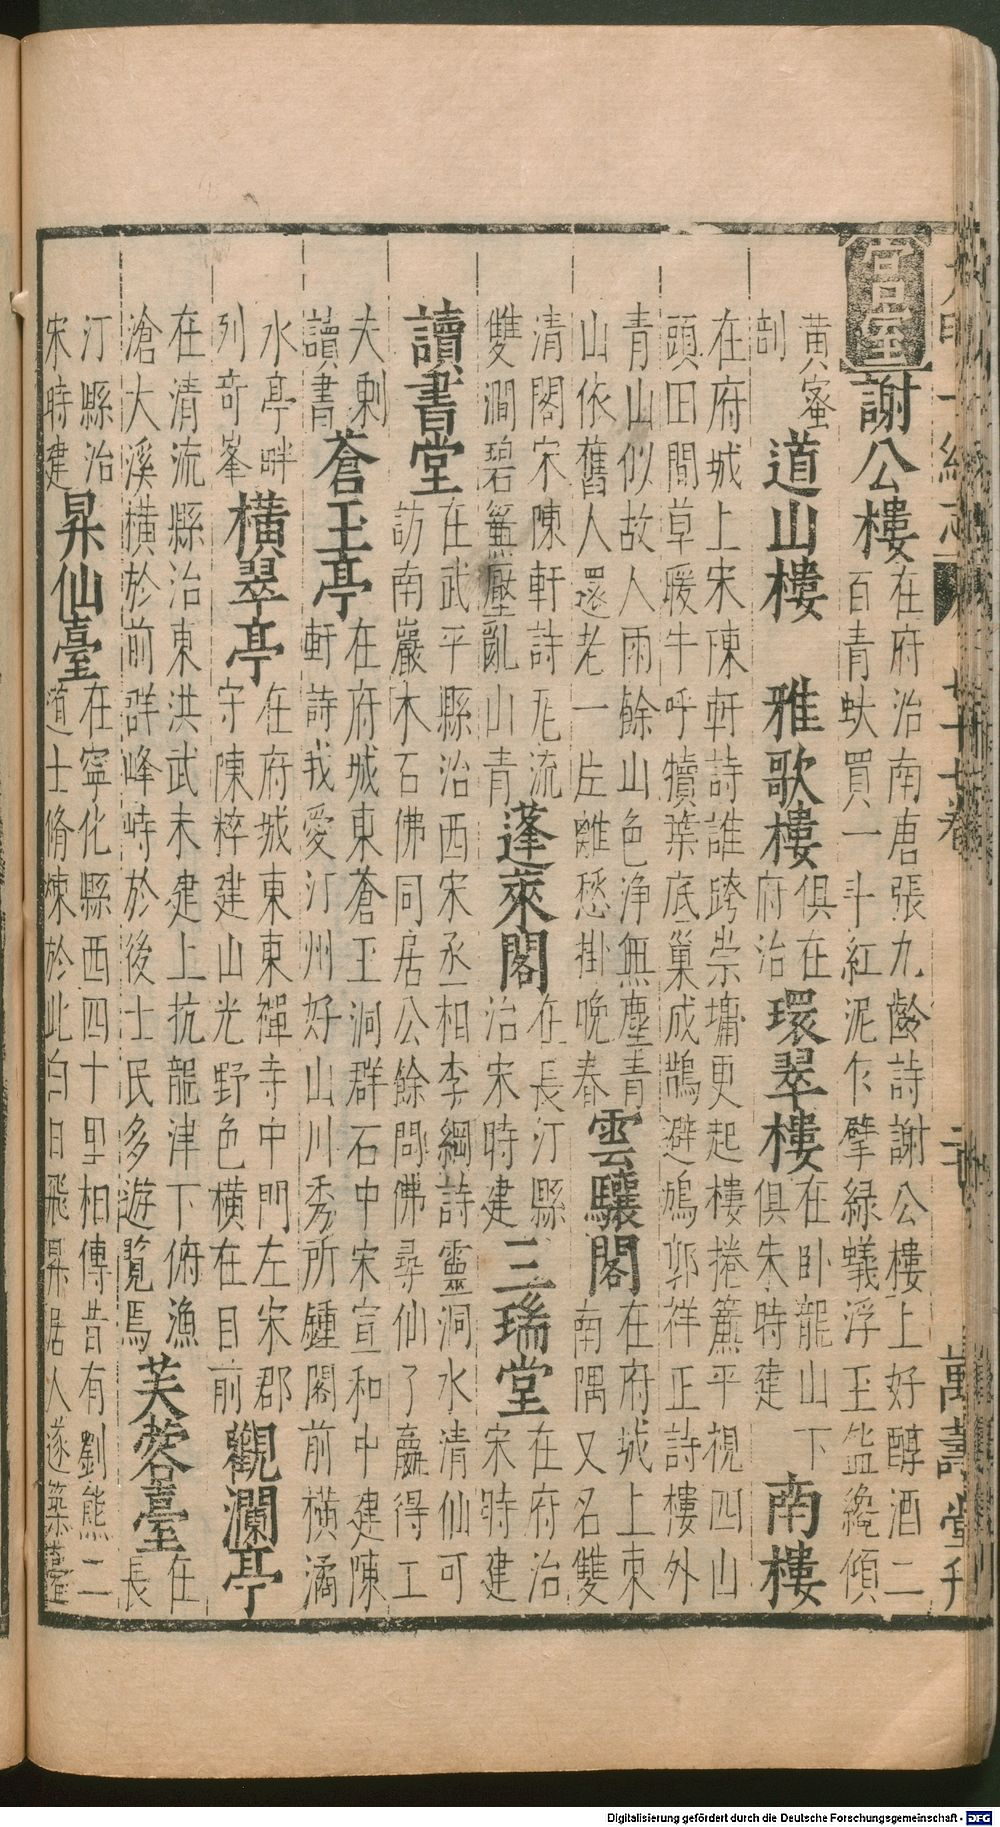 宮室謝公樓在府治南唐張九齡詩謝公樓上好醇酒二
百青蚨買一斗紅泥乍擘綠蟻浮玉盌纔傾
黃蜜
剖
道山樓 雅歌樓俱在
府治環翠樓在臥龍山下
俱朱時建南樓
在府城上宋陳軒詩誰跨崇墉更起樓捲簾平視四山
頭田間草暖牛呼犢葉底巢成鵲避鳩郭祥正詩樓外
青山似故人雨餘山色浄無塵青
山依舊人還老一片離愁掛晚春雲驤閣在府城上東
南隅又名雙
清閣宋陳軒詩瓦流
雙澗碧簾壓亂山青蓬萊閣在長汀縣
治宋時建三瑞堂在府治
宋時建
讀書堂在武平縣治西宋丞相李綱詩靈洞水清仙可
訪南巖木石佛同居公餘問佛尋仙了贏得工
夫剩
讀書蒼玉亭在府城東蒼玉洞群石中宋宣和中建陳
軒詩我愛汀州好山川秀所鍾閣前橫潏
水亭畔
列奇峯橫翠亭在府城東東禪寺中門左宋郡
守陳粹建山光野色橫在目前觀瀾亭
在清流縣治東洪武末建上抗龍津下俯漁
滄大溪橫於前群峰峙於後士民多遊覽焉芙蓉臺在
長
汀縣治
宋時建昇仙臺在寧化縣西四十里相傳昔有劉熊二
道士脩煉於此白日飛昇居人遂築臺
大明一統志 七十七卷 萬壽堂刊
Digitalisierung gefördert durch die Deutsche Forschungsgemeinschaft - DFG